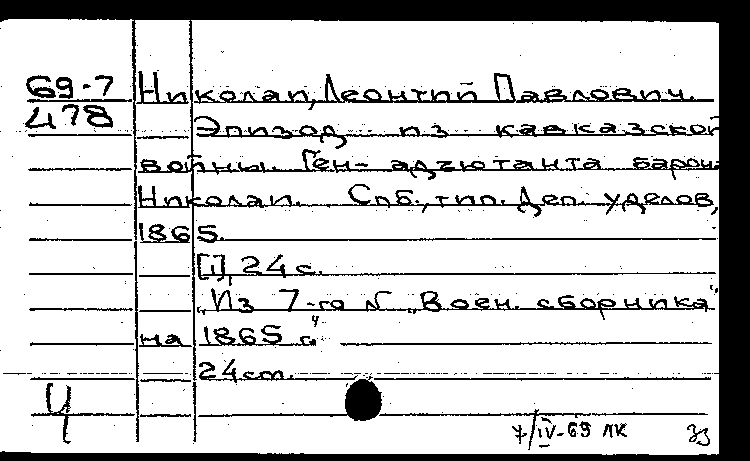 69-7 Николаи, Леонтий Павлович.
478 Эпизод из кавказской
войны. Ген-адъютанта барона
Николаи. Спб., тип. Деп. уделов,
1865.
[1], 24 с.
„Из 7-го № „Воен. сборника"
на 1865 г."
24 см.
Ч
7/IV-69 ЛК